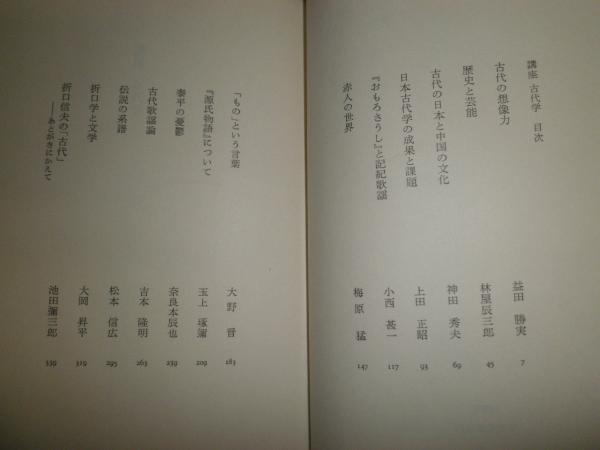 講座 古代学 目次
古代の想像力 益田勝実 7
歴史と芸能 林屋辰三郎 45
古代の日本と中国の文化 神田秀夫 69
日本古代学の成果と課題 上田正昭 93
『おもろさうし』と記紀歌謡 小西甚一 117
赤人の世界 梅原猛 147
「もの」という言葉 大野晋 183
『源氏物語』について 玉上琢彌 209
泰平の憂鬱 奈良本辰也 239
古代歌謡論 吉本隆明 263
伝説の系譜 松本信広 295
折口学と文学 大岡昇平 319
折口信夫の「古代」
——あとがきにかえて 池田彌三郎 339